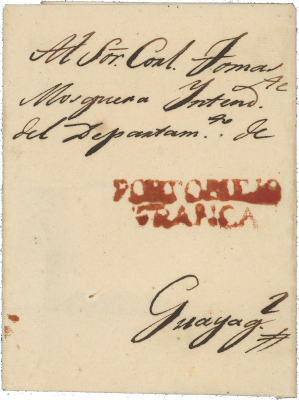 Al Sor. Corl. Tomas de
Mosquera Yntend.
del Departam.to de
PORTOVIEJO
FRANCA
Guayaq.l